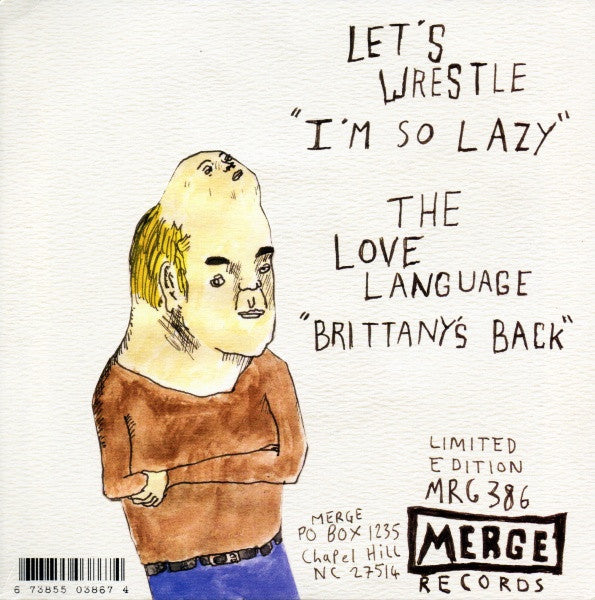 LET'S
WRESTLE
"I'M SO LAZY"
THE
LOVE
LANGUAGE
"BRITTANY'S BACK"
LIMITED
EDITION
MRG386
MERGE
PO BOX 1235
Chapel Hill
NC 27514
MERGE
RECORDS
6 73855 03867 4